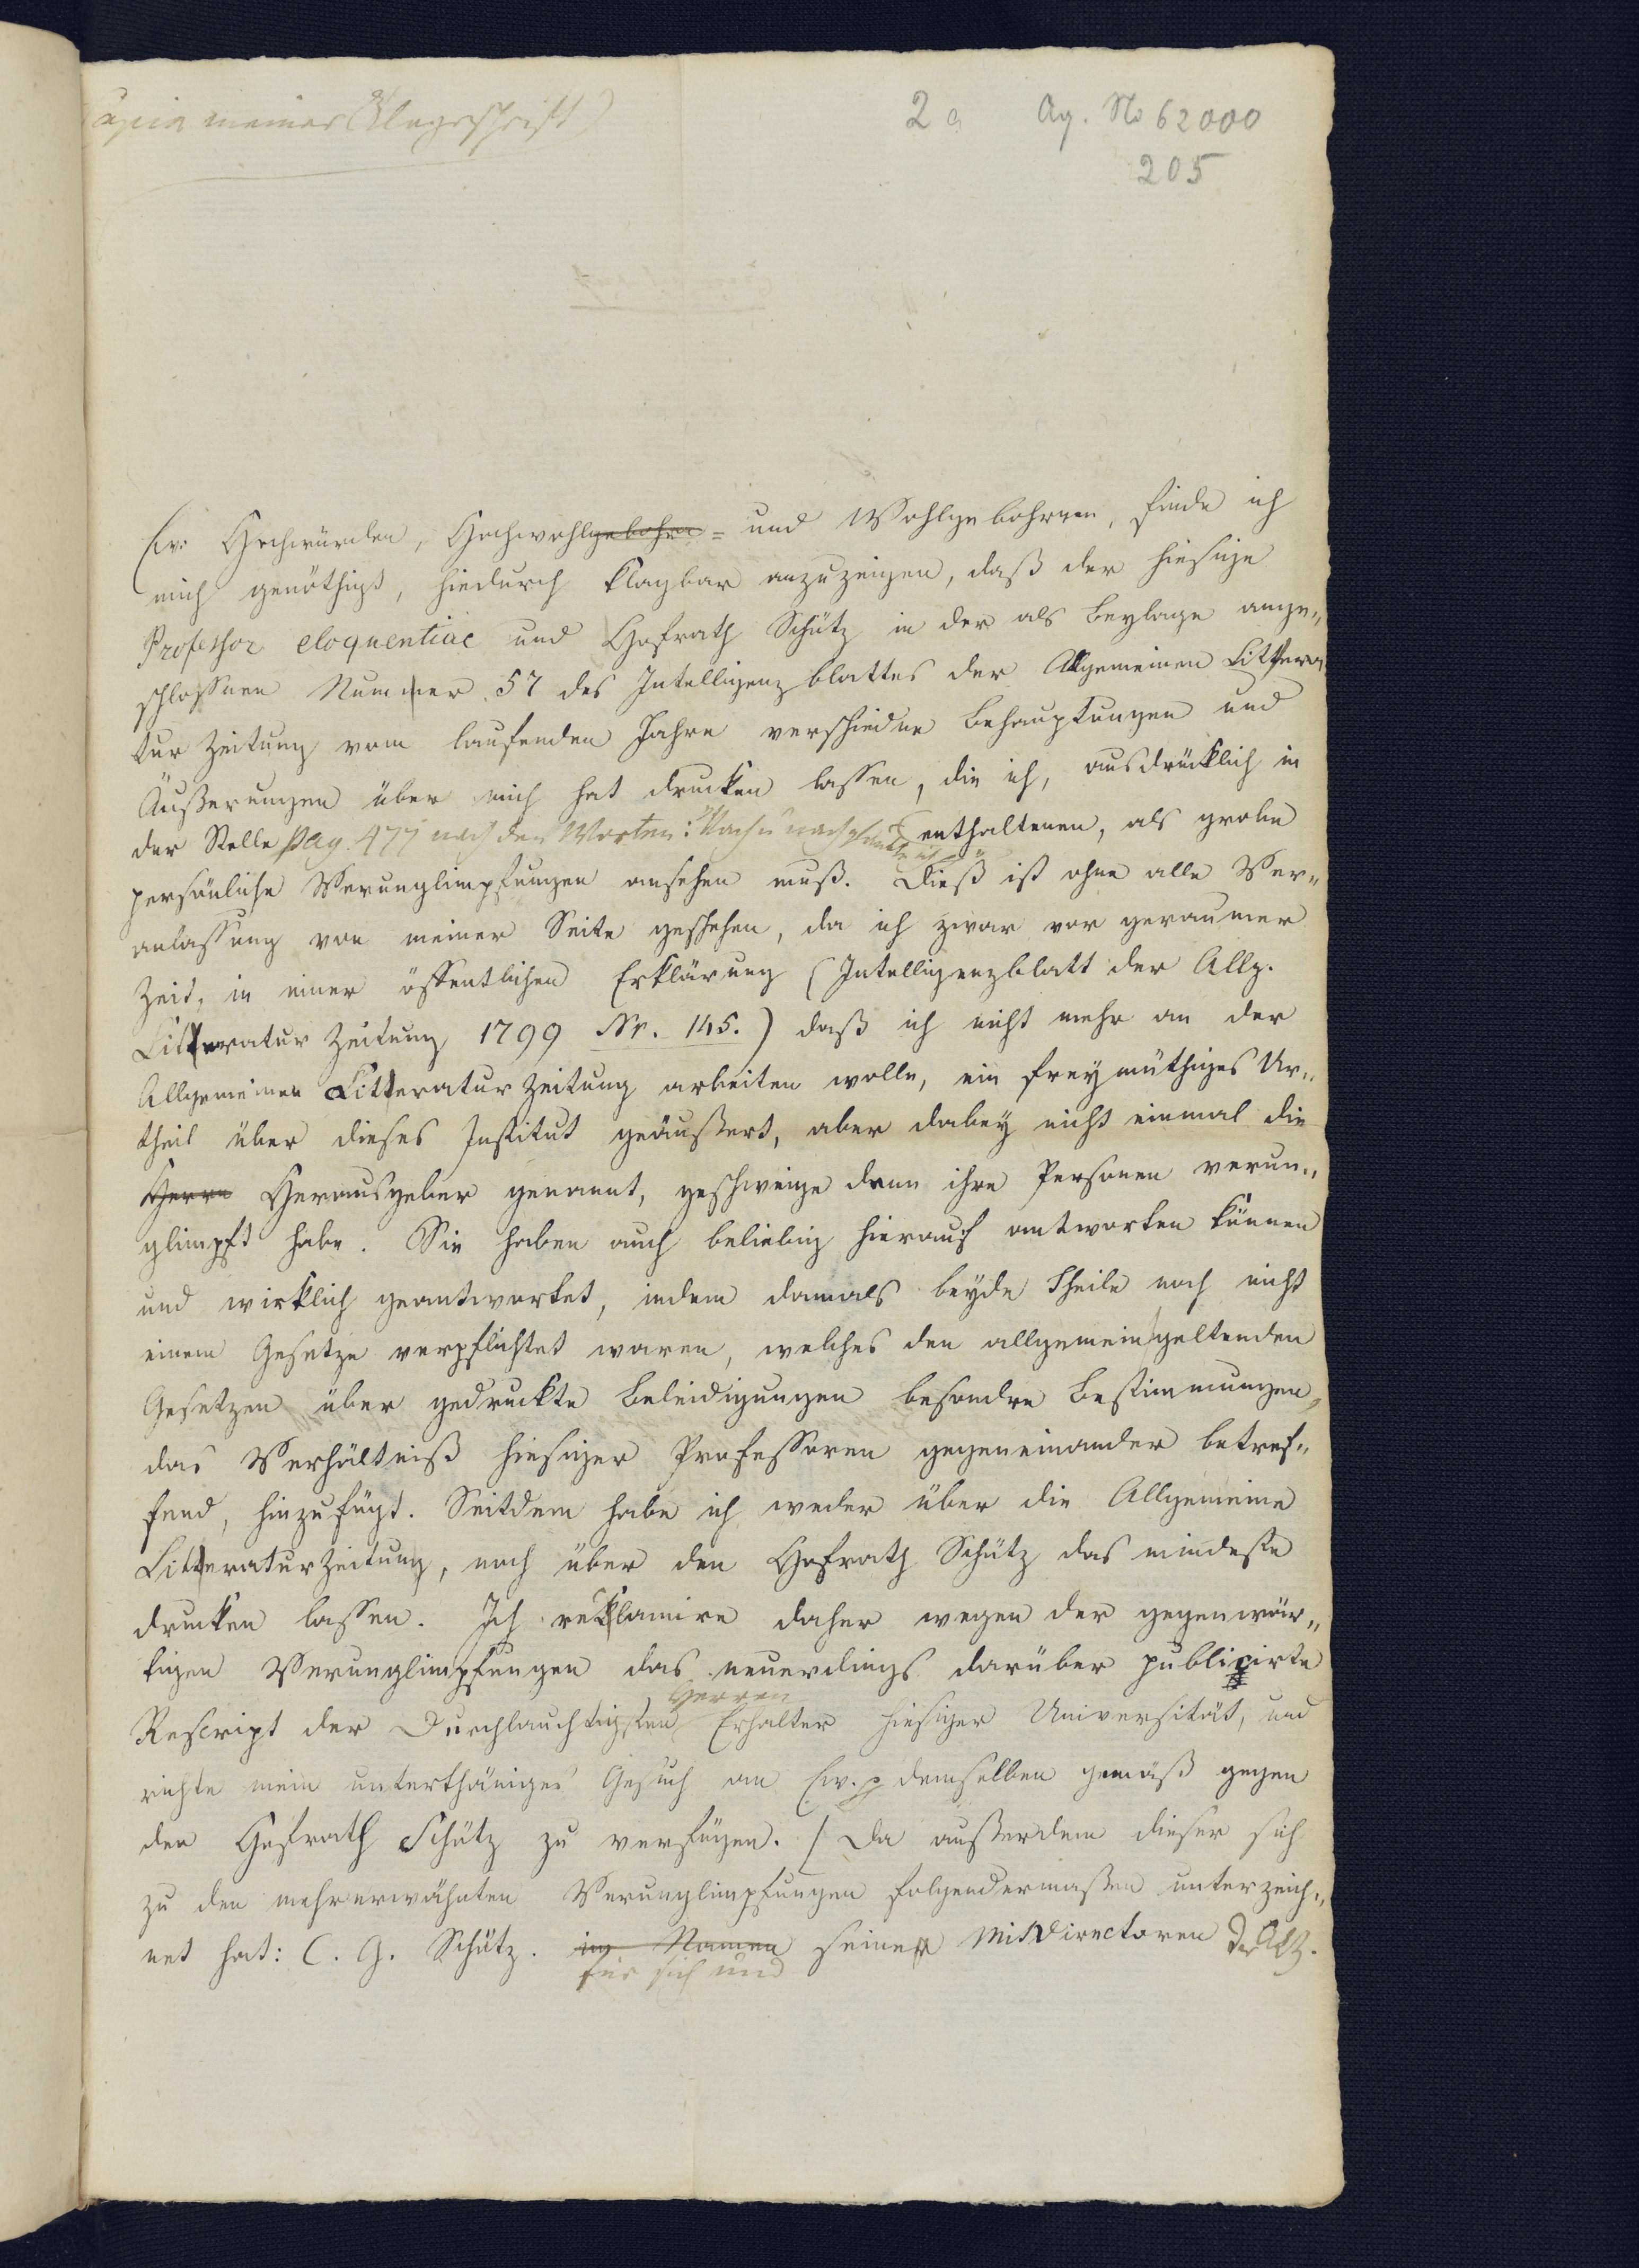 Copia meiner Klageschrift)
2a Ag. No 62000
205
Ew. Hochwürden, Hochwohlgebohrn= und Wohlgebohrnen, finde ich
mich genöthigt, hiedurch klagbar anzuzeigen, daß der hiesige
Professor eloquentiae und Hofrath Schütz in der als Beylage ange„
schlossnen Nummer 57 des Intelligenzblattes der Allgemeinen Littera
tur Zeitung vom laufenden Jahre verschiedne Behauptungen und
Äußerungen über mich hat drucken lassen, die ich, ausdrücklich in
der Stelle pag. 477 nach den Worten: "Nach u nach enthaltenen, als grobe
persönliche Verunglimpfungen ansehen muß. Dieß ist ohne alle Ver„
anlassung von meiner Seite geschehen, da ich zwar vor geraumer
Zeit, in einer öffentlichen Erklärung (Intelligenzblatt der Allg.
Litteratur Zeitung 1799 Nr. 145.) daß ich nicht mehr an der
Allgemeinen Litteratur Zeitung arbeiten wolle, ein freymüthiges Ur„
theil über dieses Institut geäußert, aber dabey nicht einmal die
Herrn Herausgeber genannt, geschweige denn ihre Personen verun„
glimpft habe. Sie haben auch beliebig hierauf antworten können
und wirklich geantwortet, indem damals beyde Theile noch nicht
einem Gesetze verpflichtet waren, welches den allgemein geltenden
Gesetzen über gedruckte Beleidigungen besondre Bestimmungen,
das Verhältniß hiesiger Professoren gegeneinander betref„
fend, hinzufügt. Seitdem habe ich weder über die Allgemeine
Litteratur Zeitung, noch über den Hofrath Schütz das mindeste
drucken lassen. Ich reklamire daher wegen der gegenwär„
tigen Verunglimpfungen das neuerdings darüber publicirte
Herren
Rescript der Durchlauchtigsten Erhalter hiesiger Universität, und
richte mein unterthäniges Gesuch an Ew. p demselben gemäß gegen
den Hofrath Schütz zu verfügen. / Da außerdem dieser sich
zu den mehrerwähnten Verunglimpfungen folgendermaßen unterzeich„
net hat: C. G. Schütz. im Namen seiner Mitdirectoren der ALZ.
für sich und